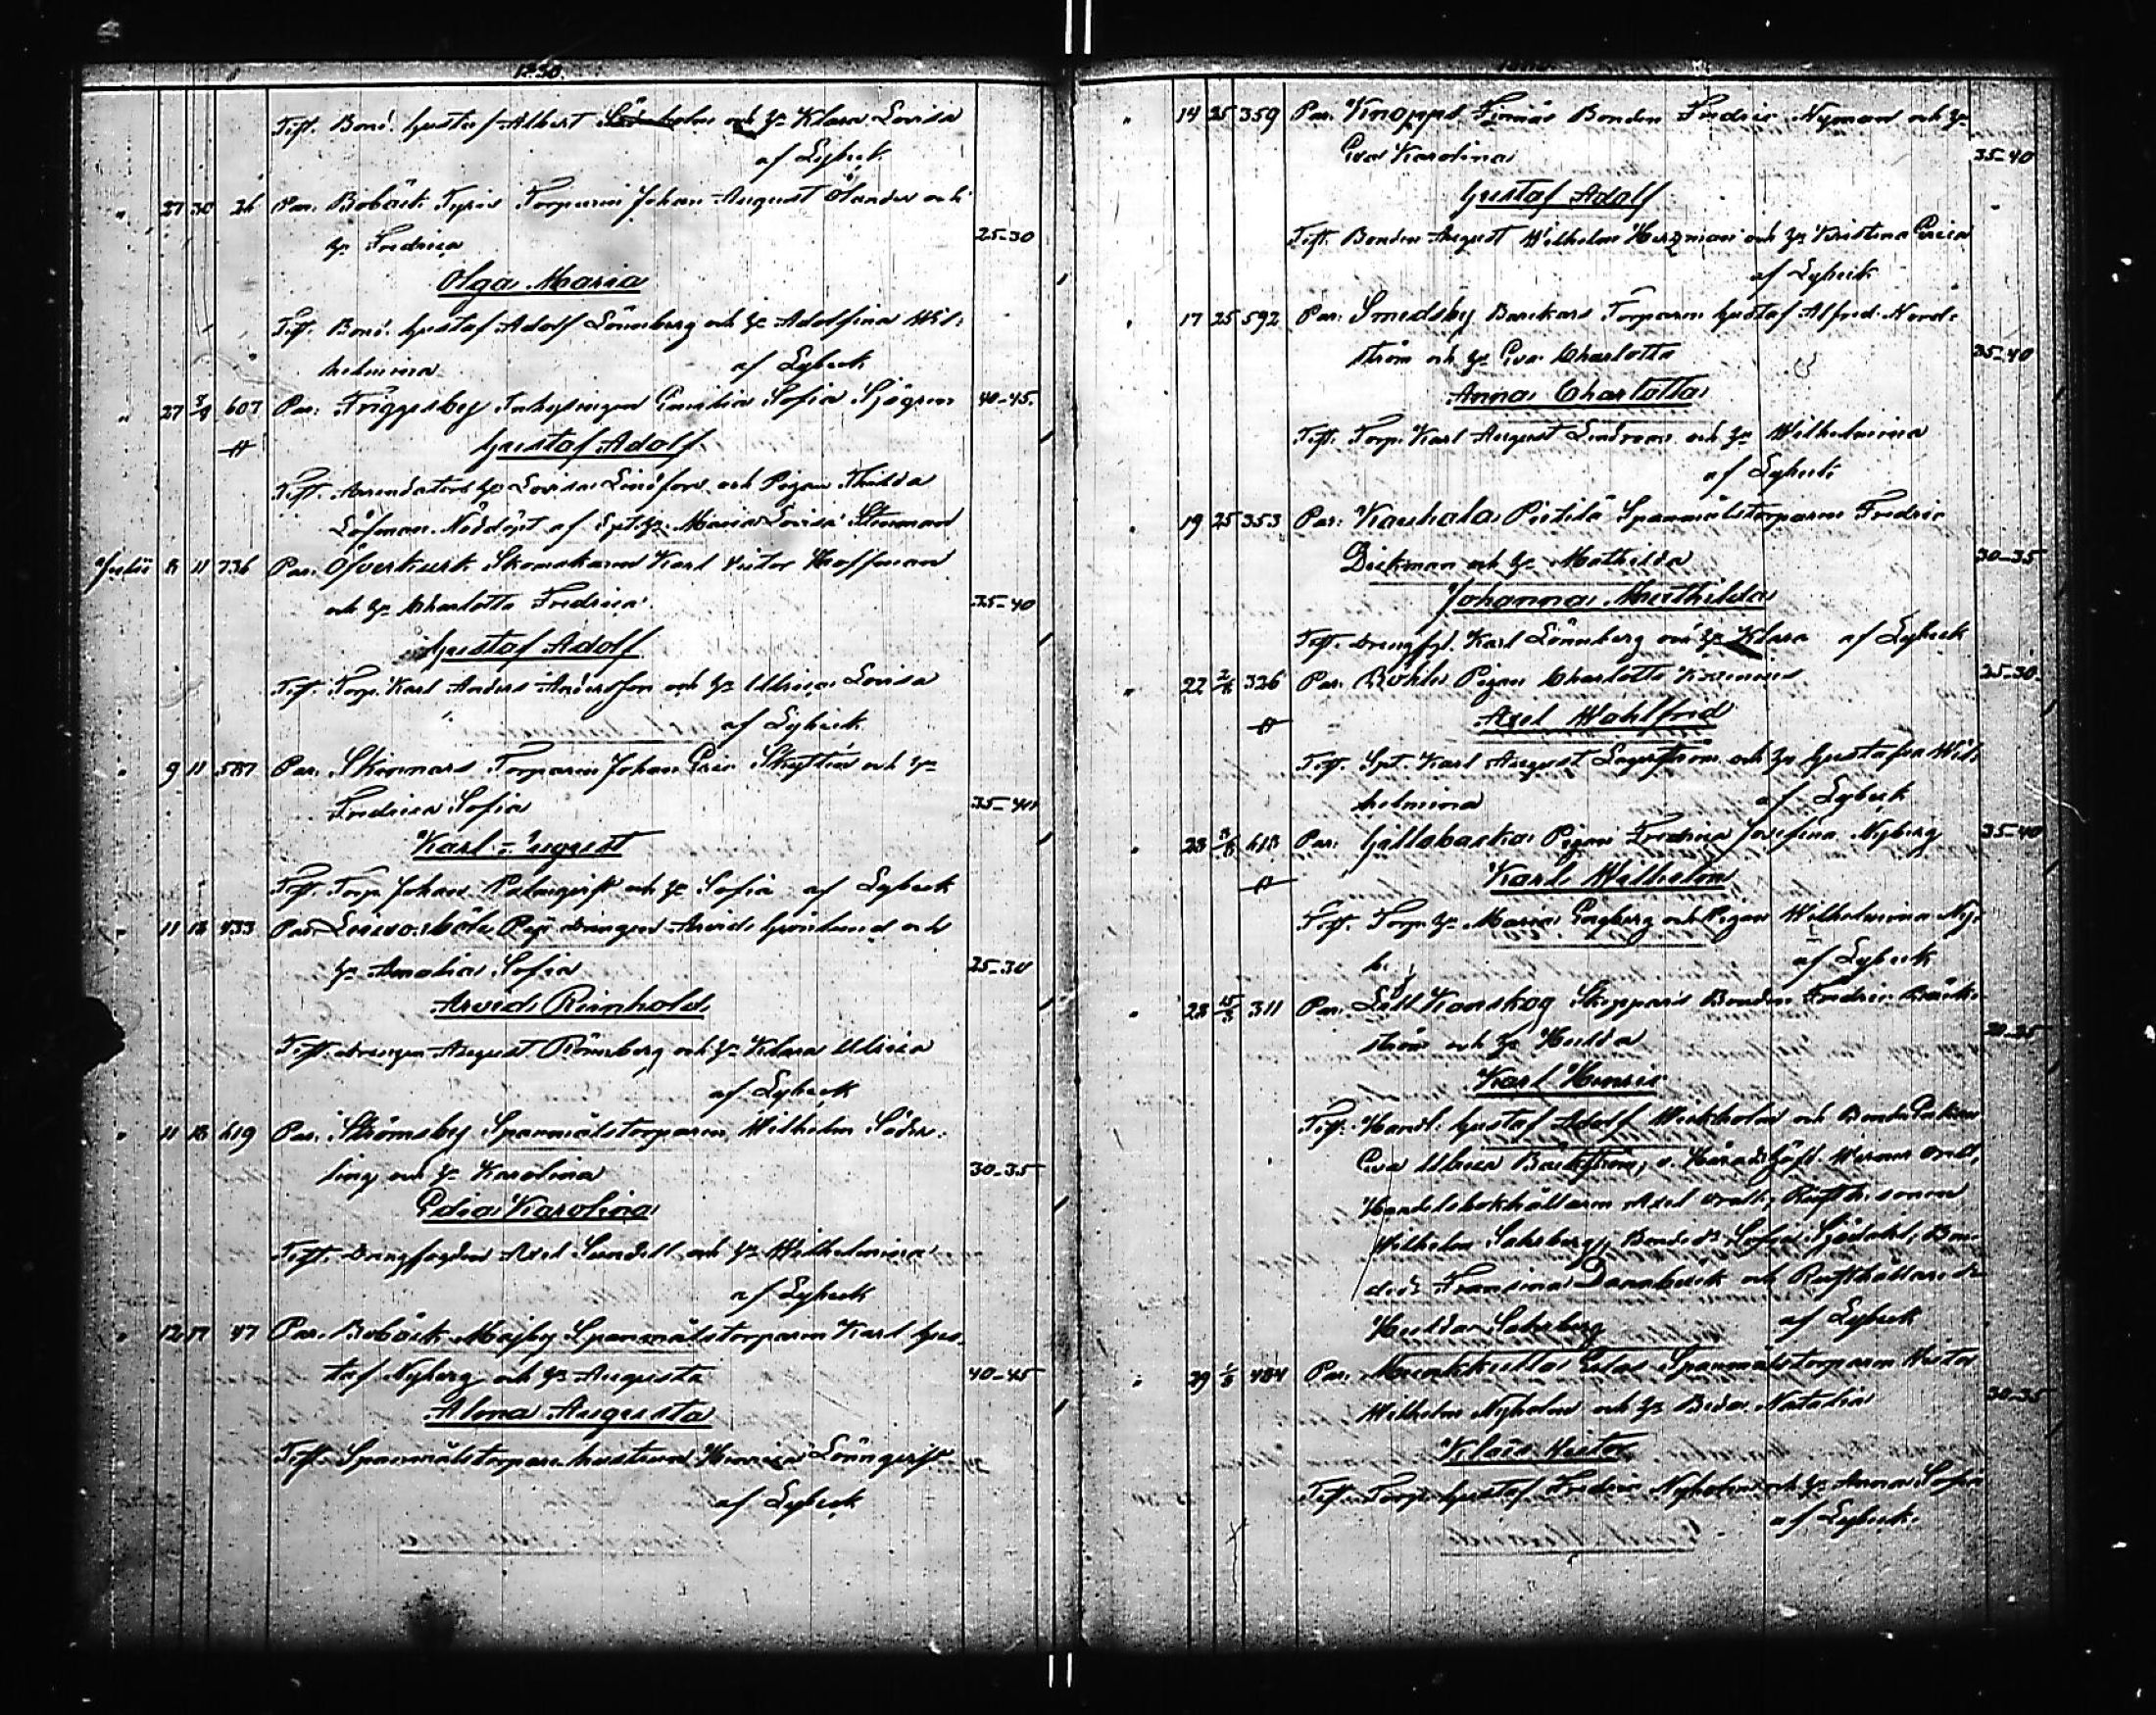 Test. Bond. Gustaf Albert och h. Klara Lovisa
af Lybeck
" 27 30 26 Par. Bobäck Torparen Johan August Olander och
h. Fredrica 25-30
Olga Maria
Test. Bond. Gustaf Adolf Lönnberg och h. Adolfina Wil-
helmina af Lybeck
" 27 607 Par. Friggesby Inhysingen Emilia Sofia Sjögren 40-45
Gustaf Adolf
Test. Arrendators h. Lovisa Lindfors och Pigan Thilda
Löfman. Nöddöpt af Maria Lovisa Stenman
Julii 8 11 736 Par. Öfverkurk Skomakaren Karl Victor Hoffman
och h. Charlotta Fredrica 35-40
Gustaf Adolf
Test. Torp. Karl Anders Andersson och h. Ulrica Lovisa
af Lybeck
" 9 11 587 Par. Skinnars Torparen Johan Eric och h.
Fredrica Sofia 35-40
Karl August
Test. Torp. Johan Palmqvist och h. Sofia af Lybeck
" 11 18 433 Par. drängen Arvid Grönlund och
h. Amalia Sofia 25-30
Arvid Reinhold
Test. drängen August Rönnberg och h. Klara Ulrica
af Lybeck
" 11 18 619 Par. Strömsby Spanmålstorparen Wilhelm Söder-
ling och h. Karolina 30-35
Edia Karolina
Test. Drängfogden Axel Sundell och h. Wilhelmina
af Lybeck
" 12 17 47 Par. Bobäck Majby Spanmålstorparen Karl Gus-
taf Nyberg och h. Augusta 40-45
Alma Augusta
Test. Spanmålstorpare hustrun Henrica Lönnqvist
af Lybeck
" 14 25 359 Par. Knapps Bonden Fredric Nyman och h.
Eva Karolina 35-40
Gustaf Adolf
Test. Bonden August Wilhelm Bergman och h. Kristina Erica
af Lybeck
" 17 25 592 Par. Smedsby Barckars Torparen Gustaf Alfred Nord-
ström och h. Eva Charlotta 35-40
Anna Charlotta
Test. Torp. Karl August Lindroos och h. Wilhelmina
af Lybeck
" 19 25 353 Par. Kauhala Pietilä Spanmålstorparen Fredric
Dickman och h. Mathilda 30-35
Johanna Mathilda
Test. Drängfgd. Karl Lönnberg och h. Klara af Lybeck
" 22 2/8 326 Par. Pigan Charlotta 25-30
Axel Wahlfrid
Test. Karl August Lagerström och h. Gustafva Wil-
helmina af Lybeck
" 23 618 Par. Gillobacka Pigan Fredrica Josefina Nyberg 35-40
Karl Wilhelm
Test. Torp. h. Maria Engberg och Pigan Wilhelmina Ny-
b. af Lybeck
" 28 15/8 311 Par. Lill Kanskog Skeppars Bonden Fredric Bäck-
ström och h. Hulda
Karl Henric
Test. Handl. Gustaf Adolf och Bonde Enkan
Eva Ulrica Bäckström, Häradshöfd. Werner
Handelsbokhållaren Axel Rusth. sonen
Wilhelm Sahlberg, Bonded. Sofia Sjödahl, Bon-
ded. Fransina Dannbäck och Rusthållared.
Hulda Sahlberg af Lybeck
" 29 1/8 484 Par. Munkkulla Spanmålstorparen Victor
Wilhelm Nyholm och h. Beda Natalia 30-35
Klas Victor
Test. Torp. Gustaf Fredric Nyholm och h. Anna Sofia
af Lybeck